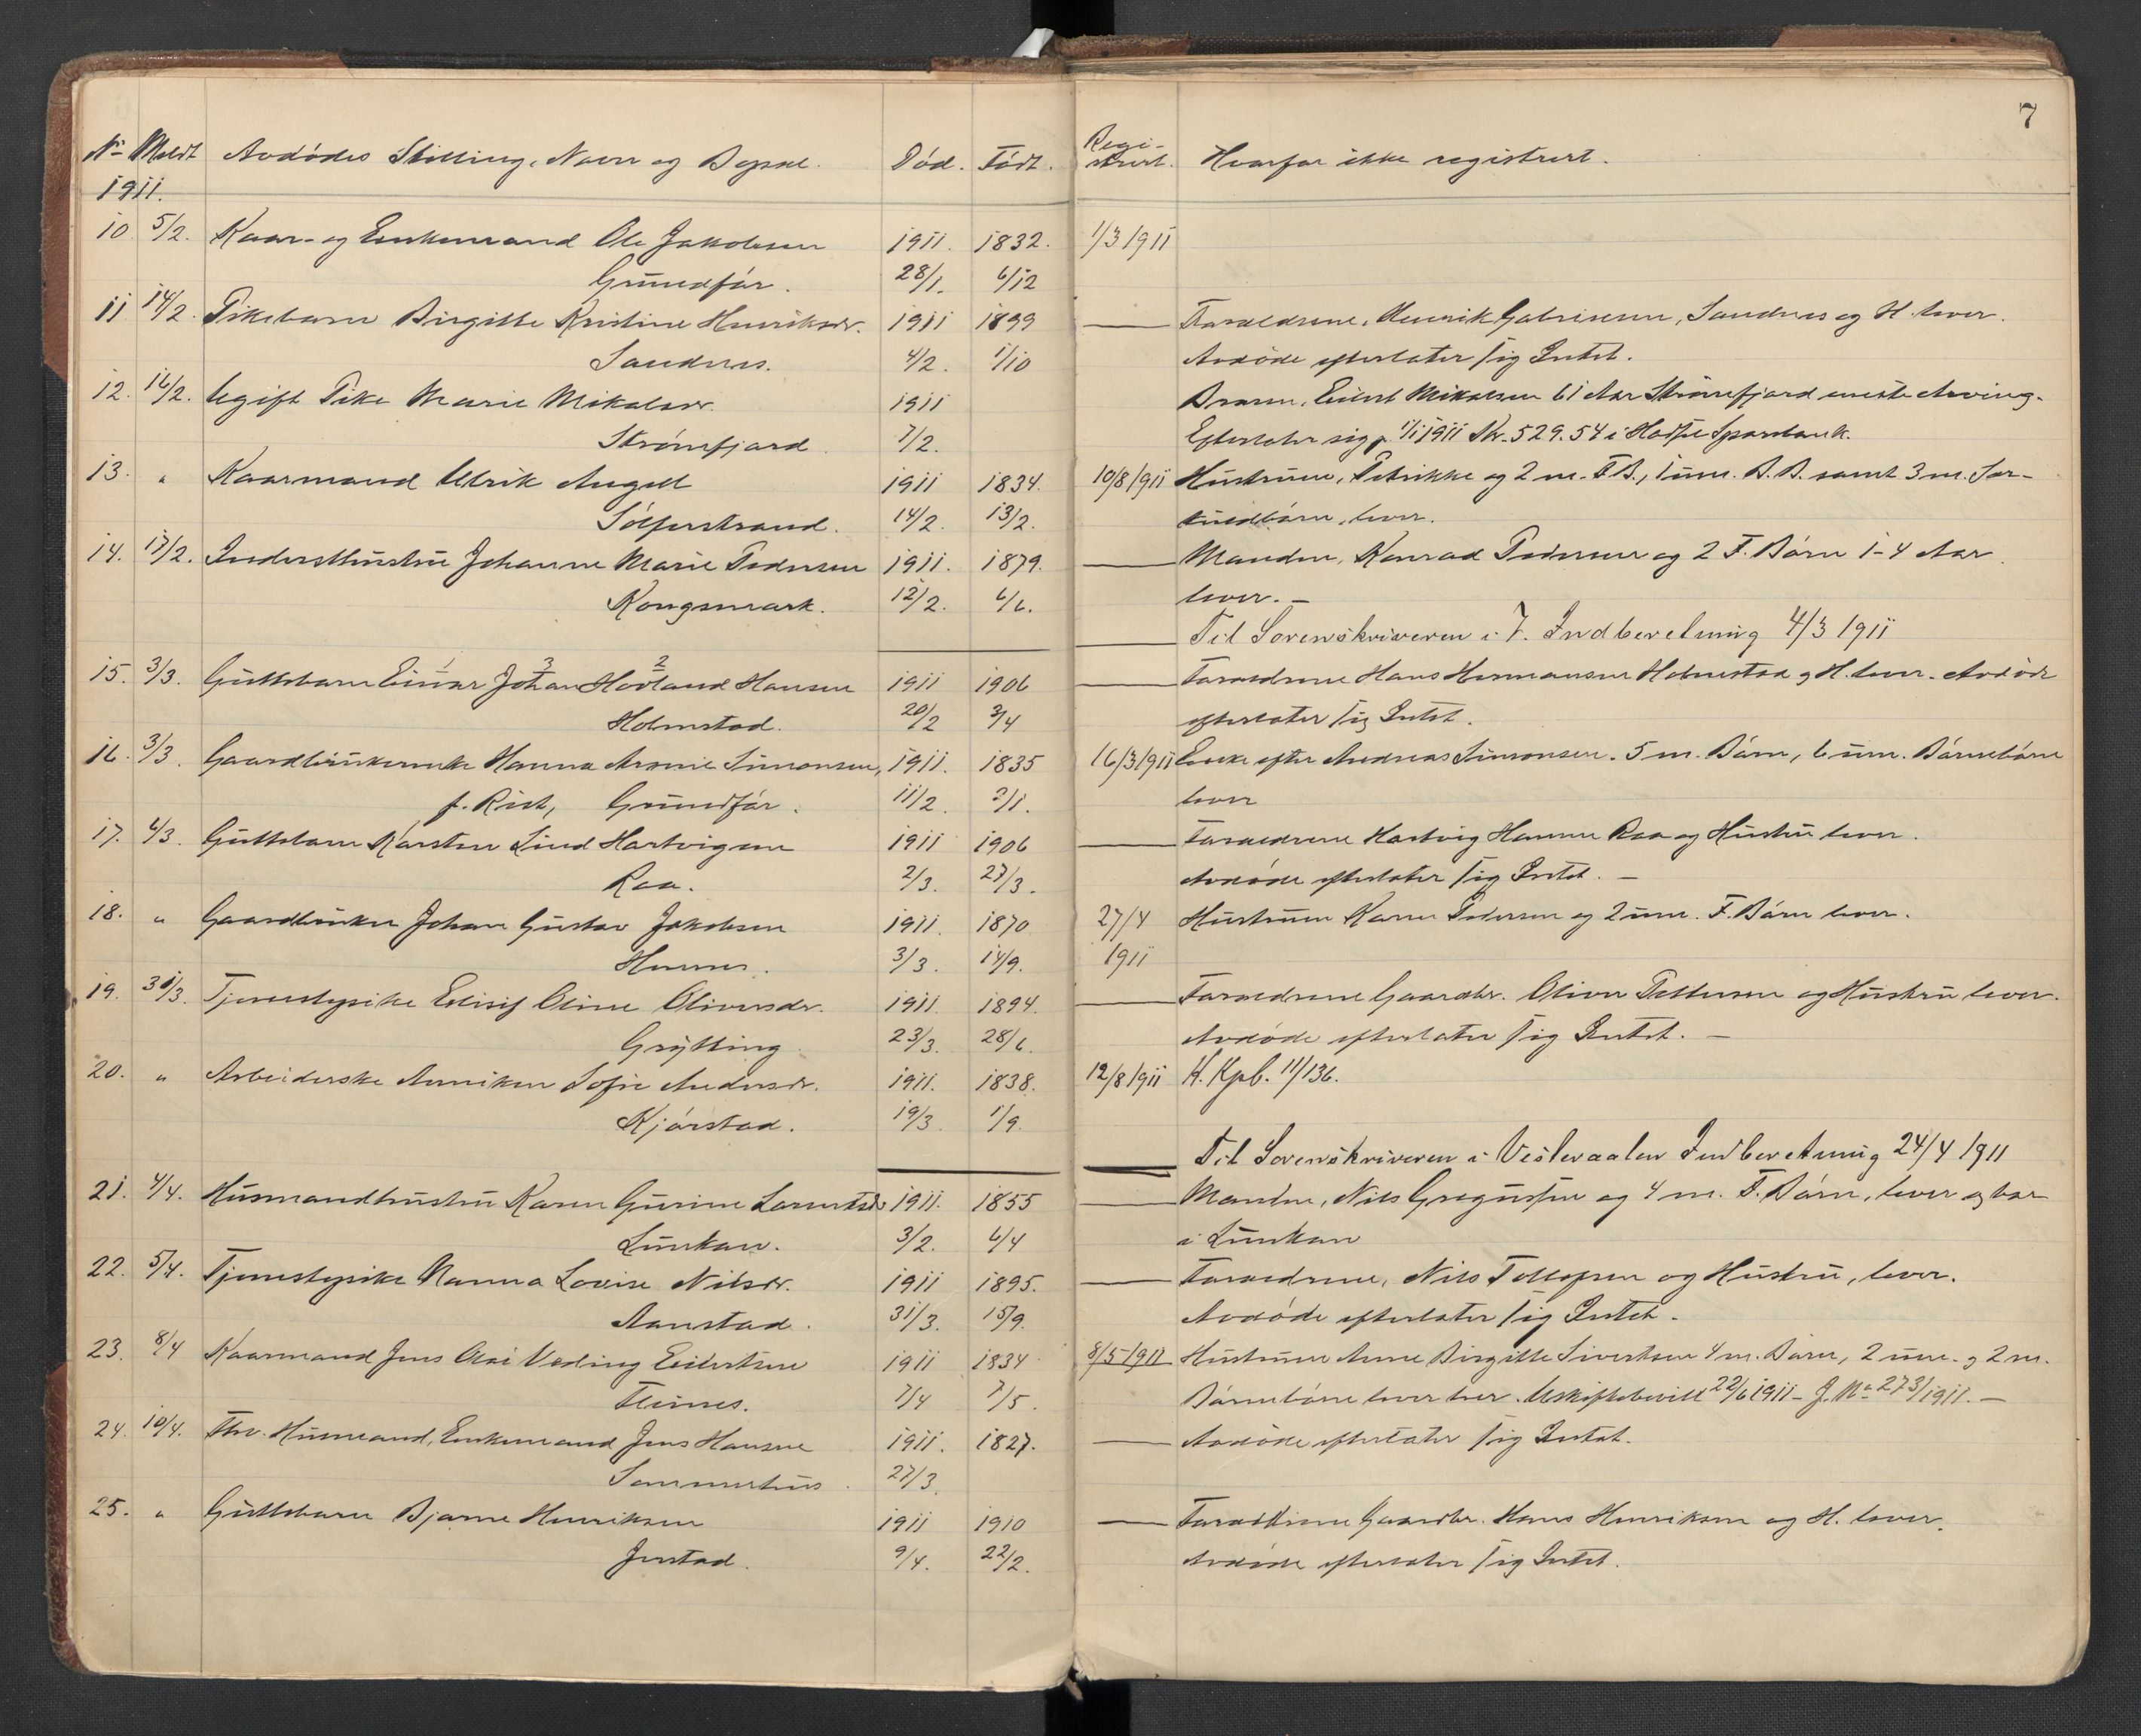 7
No Meldt Avdödes Stilling, Navn og Bopæl. Död. Födt. Regi-
strert. Hvorfor ikke registrert.
1911.
10 5/2. Kaar- og Enkemand Ole Jakobsen 1911. 1832. 1/3 1911
Grundför. 28/1. 6/12
11 14/2. Pikebarn Birgitte Kristine Henriksdr. 1911 1899 — Forældrene, Henrik Gabrielsen, Sandnes og H. lever.
Sandnes. 4/2. 1/10 Avdöde efterlater sig Intet.
12. 16/2. Ugift Pike Marie Mikalsdr. 1911 Broren, Eilert Mikalsen 61 Aar Strönefjord eneste Arving.
Strönefjord. 7/2. Efterlater sig pr 1/1 1911 Kr. 529.54 i Sparebank.
13. " Kaarmand Ulrik Angell 1911 1834. 10/8 1911 Hustruen, Petrikke og 2 m. F.B., 1 um. B.B. samt 3 m. Sær-
Sölferstrand. 14/2. 13/2. kuldbörn, lever.
14. 17/2. Indersthustru Johanne Marie Pedersen 1911. 1879. — Manden, Konrad Pedersen og 2 F. Börn 1-4 Aar
Kongsmark. 12/2. 6/6. lever. —
— Til Sorenskriveren i V. Indberetning 4/3 1911
15. 3/3. Guttebarn Einar 1 Johan 3 Hovland 2 Hansen 1911 1906 — Forældrene Hans Hermansen Holmstad og H. lever. Avdöde
Holmstad. 20/2 3/4 efterlater sig Intet.
16. 3/3. Gaardbrukerenke Hanna Aronie Simonsen, 1911. 1835 16/3 1911 Enke efter Andreas Simonsen. 5 m. Börn, 6 um. Börnebörn
f. Rist, Grundför. 11/2 2/1. lever
17. 6/3. Guttebarn Karsten Lind Hartvigsen 1911 1906 — Forældrene Hartvig Hansen Raa og Hustru lever.
Raa. 2/3. 27/3. Avdöde efterlater sig Intet. —
18. " Gaardbruker Johan Gustav Jakobsen 1911. 1870 27/4 Hustruen Karen Pedersen og 2 um. F. Börn lever.
3/3. 14/9. 1911
19. 31/3. Tjenestepike Edisif Oline Oliversdr. 1911. 1894. — Forældrene Gaardbr. Oliver Pettersen og Hustru lever.
Grytting. 23/3. 28/6. Avdöde efterlater sig Intet. —
20. " Arbeiderske Anniken Sofie Andersdr. 1911. 1838. 12/8 1911 K. Kpb. 11/136.
Kjörstad. 19/3. 1/9.
— Til Sorenskriveren i Vesteraalen Indberetning 24/4 1911
21. 4/4. Husmandhustru Karen Gurine Lorentsdr 1911. 1855 — Manden, Nils Gregusen og 4 m. F. Börn, lever og bor
Lunkan. 3/2. 6/4 i Lunkan
22. 5/4. Tjenestepike Nanna Lovise Nilsdr. 1911 1895. — Forældrene, Nils Tollefsen og Hustru, lever.
Aanstad. 31/3. 15/9. Avdöde efterlater sig Intet.
23. 8/4 Kaarmand Jens Olai Veding Eilertsen 1911 1834 8/5 1911 Hustruen Anne Birgitte Sivertsen 4 m. Börn, 2 um. og 2 m.
Flines. 7/4 7/5. Börnebörn lever her. Uskiftebevill 22/6 1911 - J. No 273/1911. —
24. 10/4. Fhv. Husmand, Enkemand Jens Hansen 1911. 1827. — Avdöde efterlater sig Intet.
27/3.
25. " Guttebarn Bjarne Henriksen 1911 1910 — Forældrene Gaardbr. Hans Henriksen og H. lever.
Jenstad. 9/4. 22/2. Avdöde efterlater sig Intet.